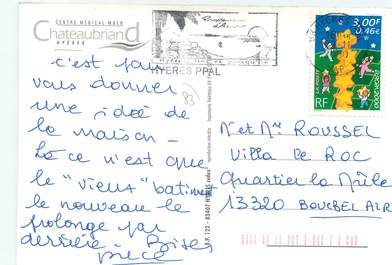 CENTRE MÉDICAL MGEN
Chateaubriand
HYÈRES
HYERES PPAL
3,00F
0,46€
LA POSTE
RF
c'est pour
vous donner
une idée de
la maison -
Là ce n'est que
le "vieux" batiment
le nouveau le
prolonge par
derrière -
pièce
B.P. 122 - 83407 HYÈRES cedex
Mr et Mme ROUSSEL
Villa le ROC
Quartier la Mûle
13320 BOUC BEL AIR